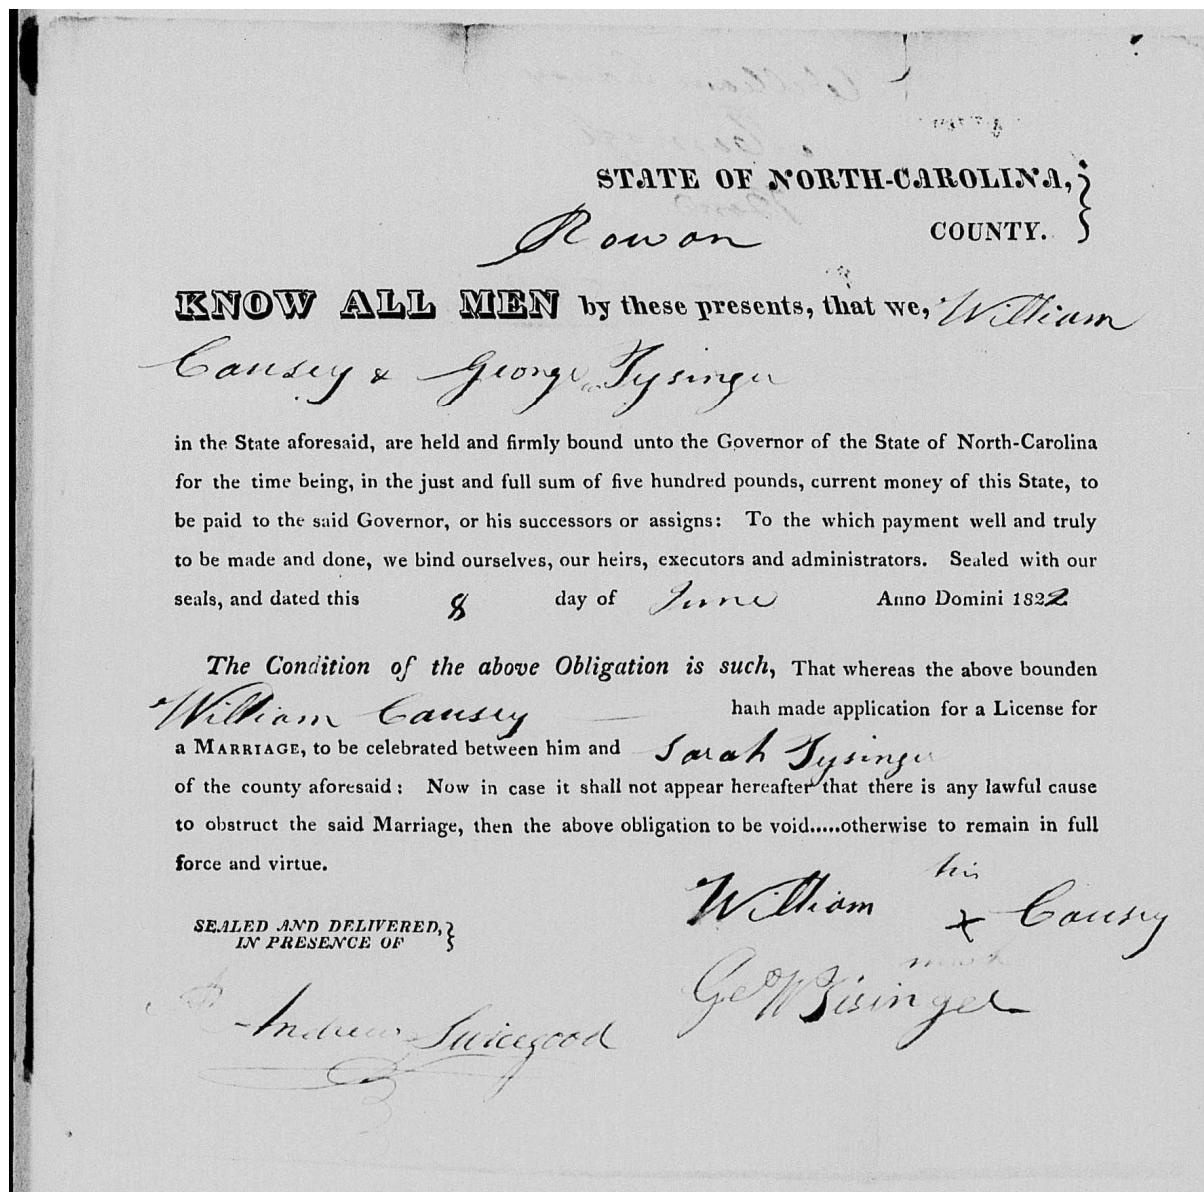 STATE OF NORTH-CAROLINA,
Rowan COUNTY.
KNOW ALL MEN by these presents, that we, William
Causey & George Tysinger
in the State aforesaid, are held and firmly bound unto the Governor of the State of North-Carolina
for the time being, in the just and full sum of five hundred pounds, current money of this State, to
be paid to the said Governor, or his successors or assigns: To the which payment well and truly
to be made and done, we bind ourselves, our heirs, executors and administrators. Sealed with our
seals, and dated this 8 day of June Anno Domini 1822
The Condition of the above Obligation is such, That whereas the above bounden
William Causey hath made application for a License for
a MARRIAGE, to be celebrated between him and Sarah Tysinger
of the county aforesaid: Now in case it shall not appear hereafter that there is any lawful cause
to obstruct the said Marriage, then the above obligation to be void.....otherwise to remain in full
force and virtue.
his
William x Causey
mark
SEALED AND DELIVERED,
IN PRESENCE OF
Geo W Tisinger
Andrew Swicegood